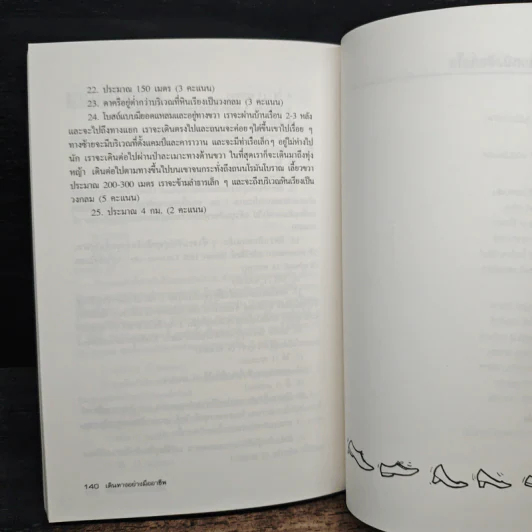 22. ประมาณ 150 เมตร (3 คะแนน)
23. คาครีอยู่ต่ำกว่าบริเวณที่หินเรียงเป็นวงกลม (3 คะแนน)
24. โบสถ์แบบมียอดแหลมและอยู่ทางขวา เราจะผ่านบ้านเรือน 2-3 หลัง
และจะไปถึงทางแยก เราจะเดินตรงไปและถนนจะค่อย ๆ ไต่ขึ้นเขาไปเรื่อย ๆ
ทางซ้ายจะมีบริเวณที่ตั้งแคมป์และคาราวาน และจะมีท่าเรือเล็ก ๆ อยู่ไม่ห่างไป
นัก เราจะเดินต่อไปผ่านป่าละเมาะทางด้านขวา ในที่สุดเราก็จะเดินมาถึงทุ่ง
หญ้า เดินต่อไปตามทางขึ้นไปบนเขาจนกระทั่งถึงถนนโรมันโบราณ เลี้ยวขวา
ประมาณ 200-300 เมตร เราจะข้ามลำธารเล็ก ๆ และจะถึงบริเวณหินเรียงเป็น
วงกลม (5 คะแนน)
25. ประมาณ 4 กม. (2 คะแนน)
140 เดินทางอย่างมืออาชีพ